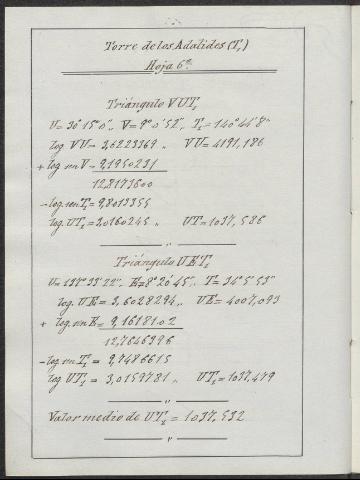 Torre de los Adalides (T₁)
Hoja 6ª
Triángulo VUT₁
U = 30°15'0", V = 9°0'52", T₁ = 140°44'8"
log. VU = 3,6223369 „ VU = 4191,186
+ log. sen V = 9,1950231
12,8173600
- log. sen T₁ = 9,8013355
log. UT₁ = 3,0160245 „ UT = 1037,586
Triángulo UET₁
E = 8°20'45", T = 34°5'53"
log. UE = 3,6028294, „ UE = 4007,093
+ log. sen E = 9,1618102
12,7646396
- log. sen T₁ = 9,7486615
log. UT₁ = 3,0159781 „ UT₁ = 1037,479
Valor medio de UT₁ = 1037,532